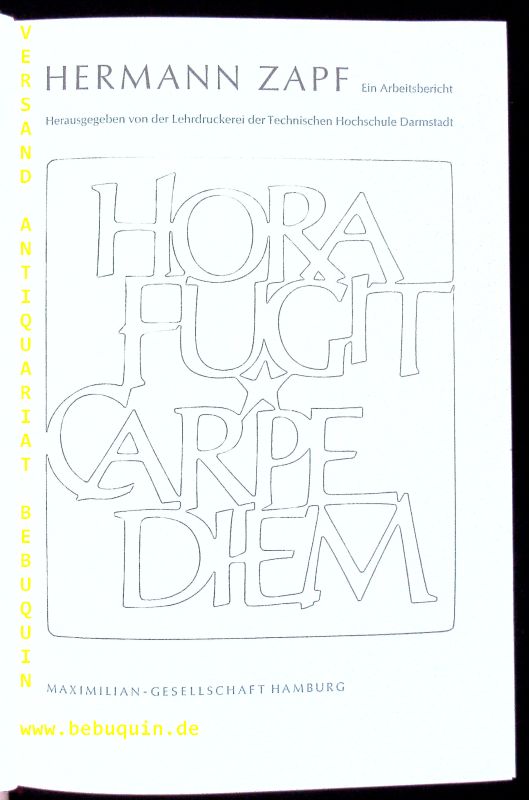 HERMANN ZAPF Ein Arbeitsbericht
Herausgegeben von der Lehrdruckerei der Technischen Hochschule Darmstadt
HORA
FUGIT
CARPE
DIEM
MAXIMILIAN-GESELLSCHAFT HAMBURG
VERSAND ANTIQUARIAT BEBUQUIN
www.bebuquin.de